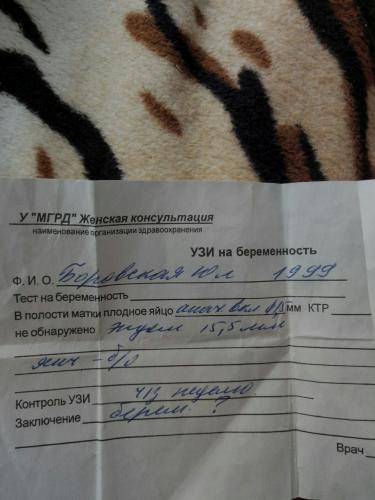 У "МГРД" Женская консультация
наименование организации здравоохранения
УЗИ на беременность
Ф. И. О. Боровская Юл 1999
Тест на беременность
В полости матки плодное яйцо мм КТР
не обнаружено 15,5 мм
яич - б/о
Контроль УЗИ ч/з неделю.
Заключение берем. ?
Врач